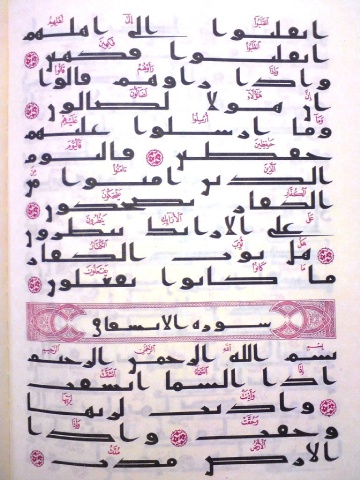 انقلبوا الى اهلهم
انقلبوا فكهين
واذا راوهم قالوا
ان هولا لضالون
وما ارسلوا عليهم
حفظين فاليوم
الذين امنوا من
الكفار يضحكون
على الارايك ينظرون
هل ثوب الكفار
ما كانوا يفعلون
سوره الانشقاق
بسم الله الرحمن الرحيم
اذا السما انشقت
واذنت لربها
وحقت واذا
الارض مدت